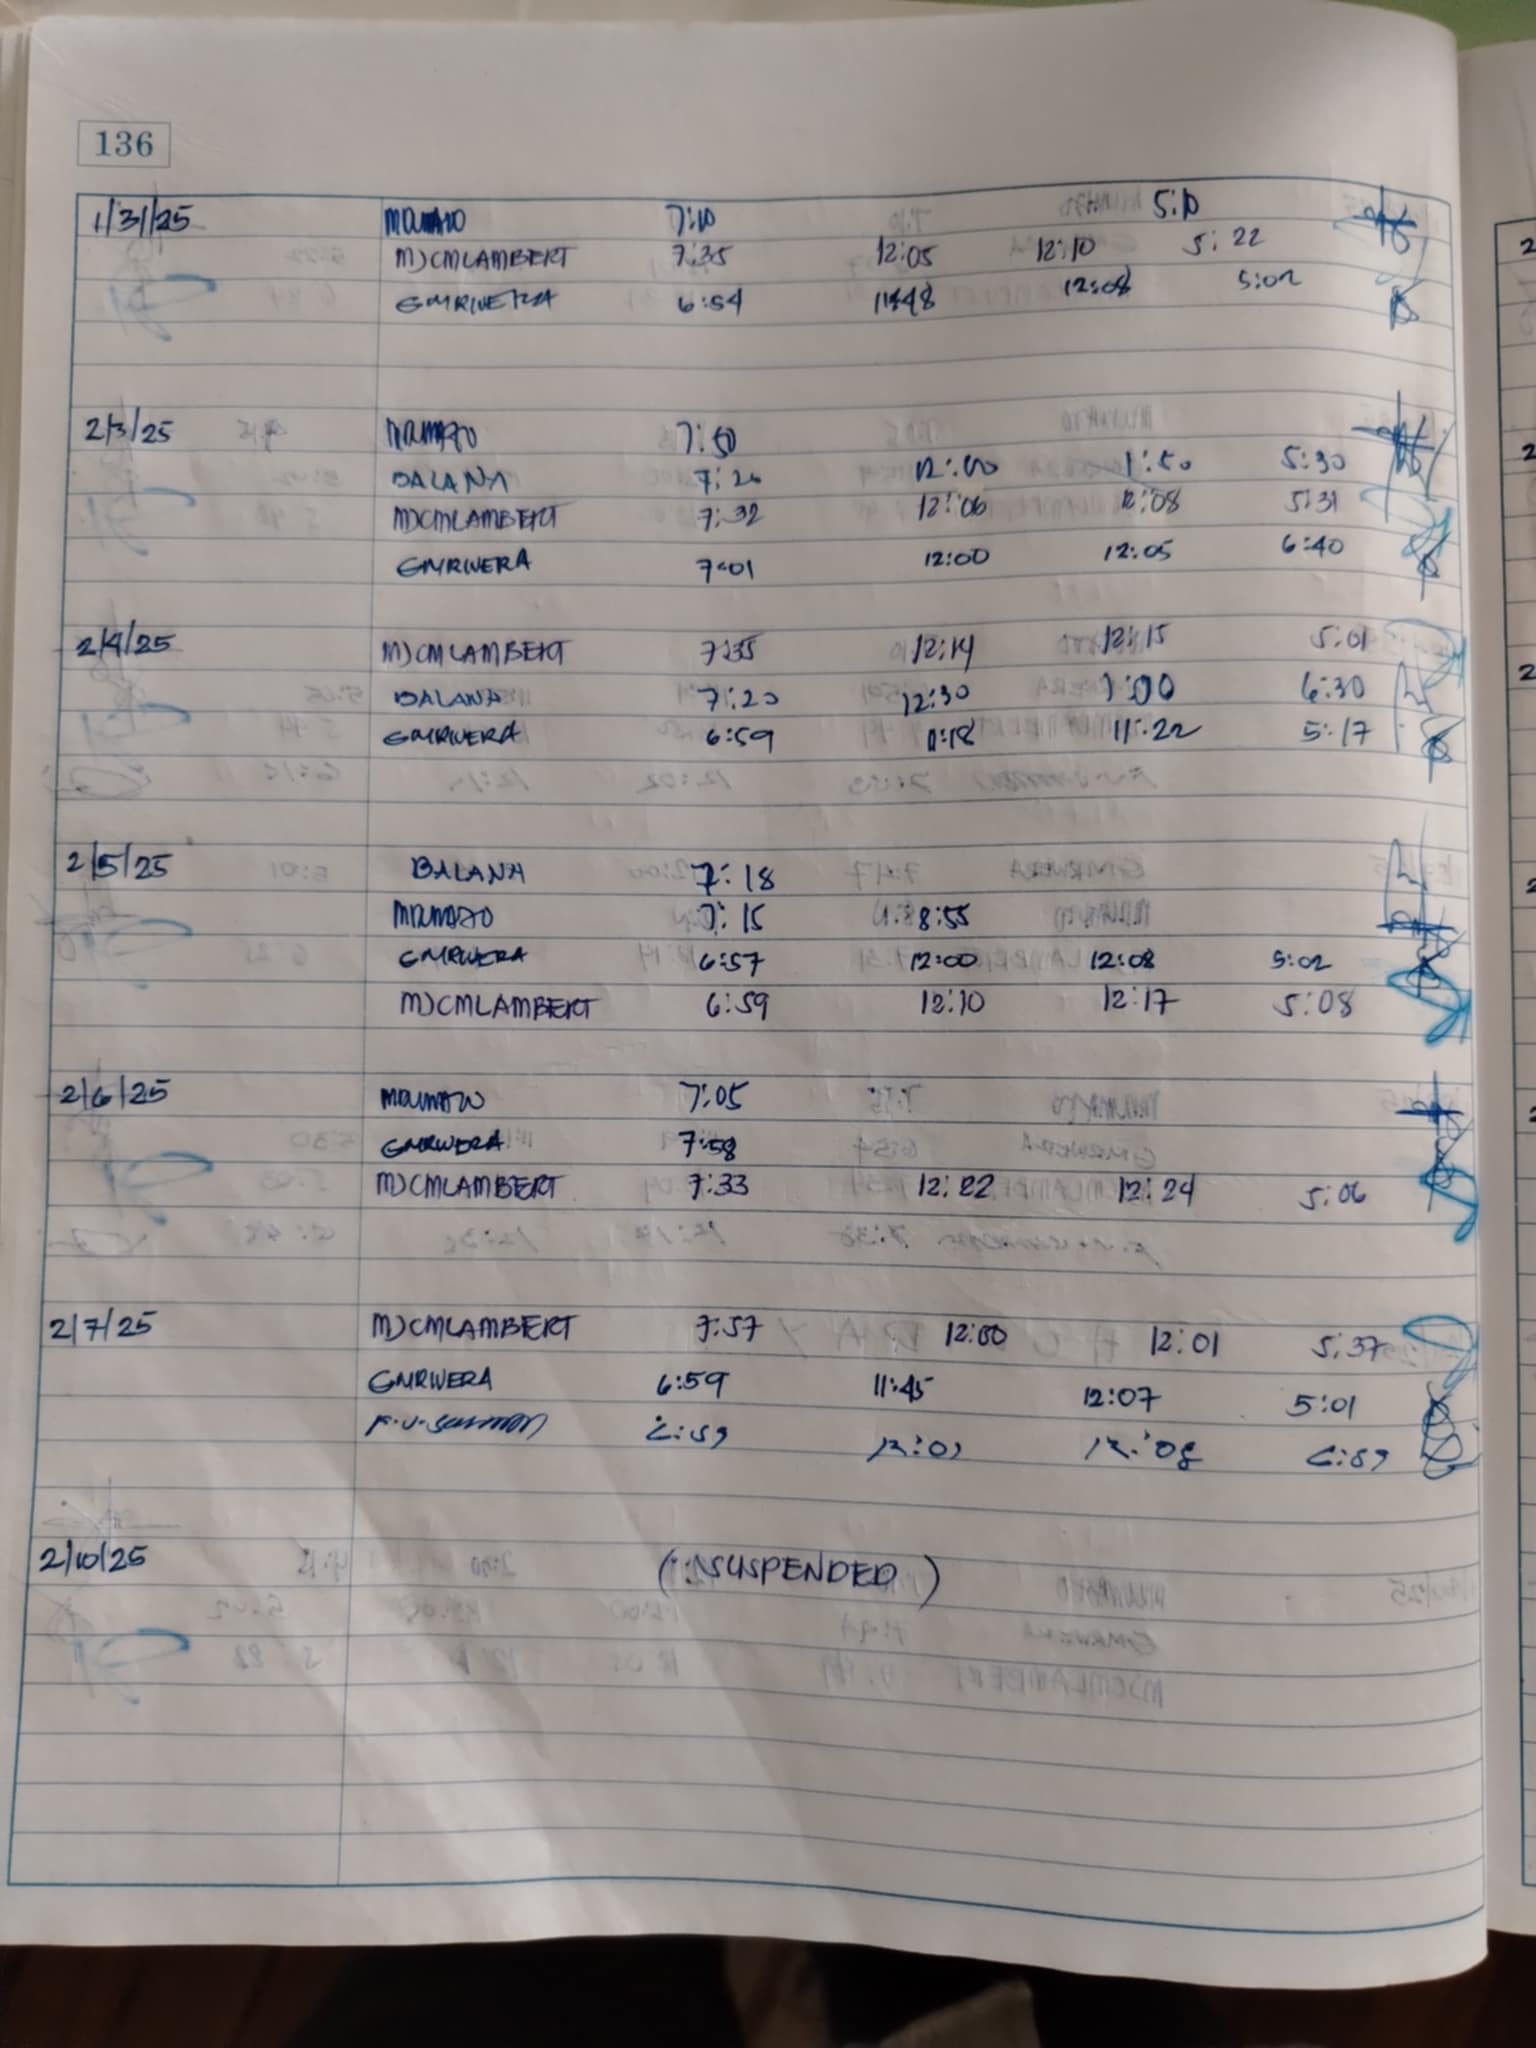 136
1/31/25 7:10 5:10
MJCMLAMBERT 7:35 12:05 12:10 5:22
GMRIVERA 6:54 11:48 12:08 5:02
2/3/25 7:50
BALANA 7:26 12:00 1:50 5:30
MJCMLAMBERT 7:32 12:06 12:08 5:31
GMRIVERA 7:01 12:00 12:05 6:40
2/4/25 MJCMLAMBERT 7:35 12:14 12:15 5:01
BALANA 7:20 12:30 1:00 6:30
GMRIVERA 6:59 11:18 11:22 5:17
2/5/25 BALANA 7:18
7:15 8:55
GMRIVERA 6:57 12:00 12:08 5:02
MJCMLAMBERT 6:59 12:10 12:17 5:08
2/6/25 7:05
GMRIVERA 7:58
MJCMLAMBERT 7:33 12:22 12:24 5:06
2/7/25 MJCMLAMBERT 7:57 12:00 12:01 5:37
GMRIVERA 6:59 11:45 12:07 5:01
12:08
2/10/25 (SUSPENDED)